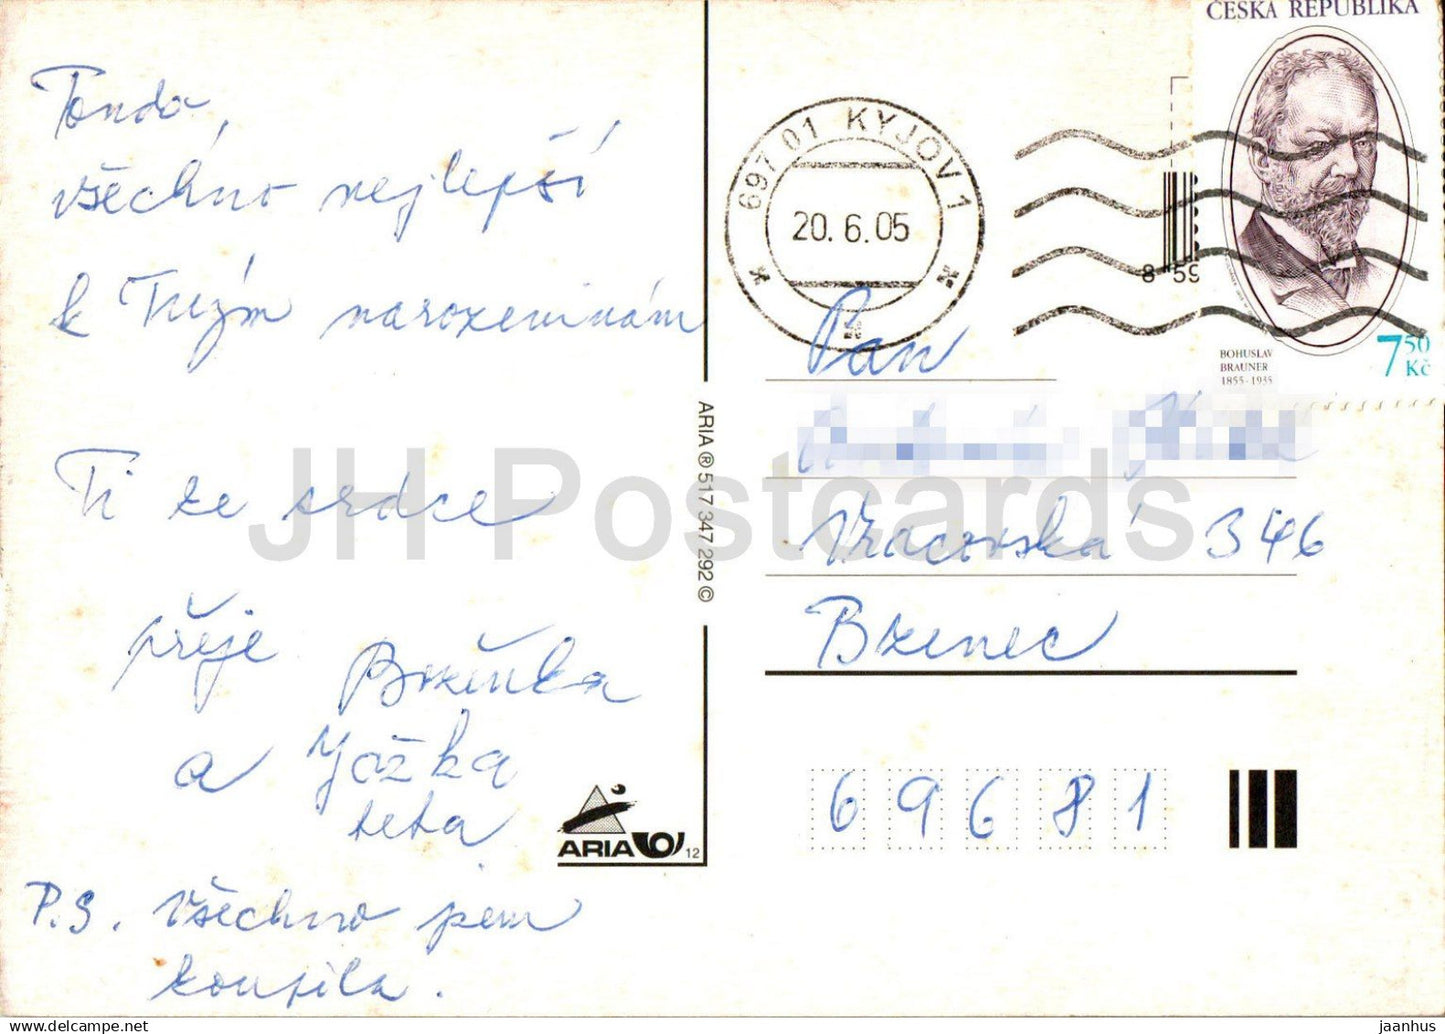 Tondo,
všechno nejlepší
k Tvým narozeninám
Ti ze srdce
přeje Boženka
a Jožka
teta
P.S. Všechno jsem
koupila.
ARIA
12
ARIA ® 517 347 292 ©
697 01 KYJOV 1
20. 6. 05
ČESKÁ REPUBLIKA
BOHUSLAV
BRAUNER
1855-1935
7 50
Kč
8 59
Pan
Vracovská 346
Bzenec
69681
JH Postcards
https://www.delcampe.net
jaanhus